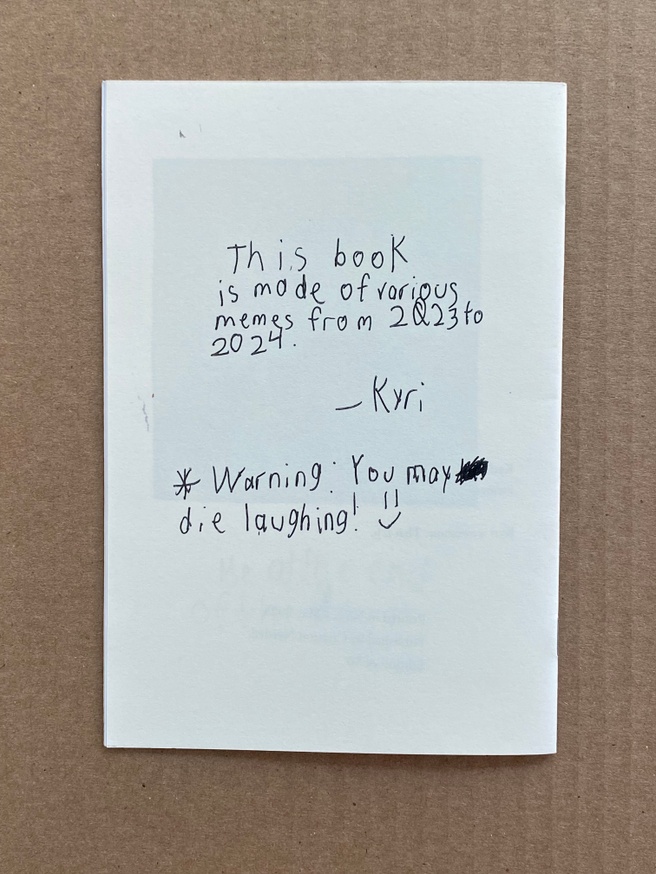 This book
is made of various
memes from 2023 to
2024.
– Kyri
* Warning: You may
die laughing! :)